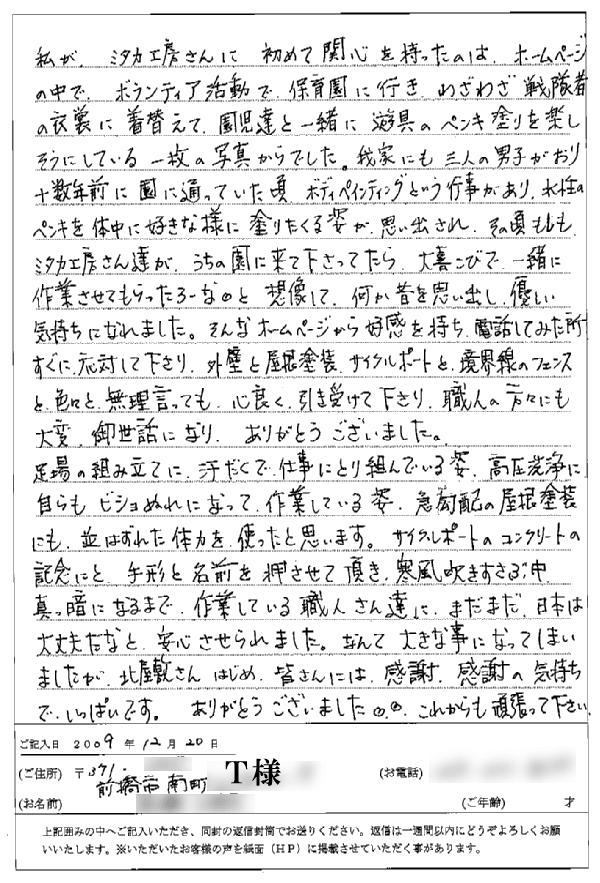 私が、ミタカ工房さんに 初めて関心を持ったのは、ホームページ
の中で、ボランティア活動で、保育園に行き、わざわざ戦隊者
の衣裳に着替えて、園児達と一緒に遊具のペンキ塗りを楽し
そうにしている一枚の写真からでした。我家にも三人の男子がおり
十数年前に園に通っていた頃 ボディペインティングという行事があり、水性の
ペンキを体中に好きな様に塗りたくる姿が、思い出され、その頃もしも、
ミタカ工房さん達が、うちの園に来て下さってたら、大喜こびで、一緒に
作業させてもらったろーなぁと 想像して、何か昔を思い出し、優しい
気持ちになれました。そんなホームページから好感を持ち、電話してみた所
すぐに、応対して下さり、外壁と屋根塗装、サイクルポートと、境界線のフェンス
と、色々と、無理言っても、心良く、引き受けて下さり、職人の方々にも
大変、御世話になり、ありがとうございました。
足場の組み立てに、汗だくで、仕事にとり組んでいる姿、高圧洗浄に
自らも ビショぬれになって、作業している姿、急勾配の屋根塗装
にも、並はずれた体力を、使ったと思います。サイクルポートのコンクリートの
記念にと、手形と名前を押させて頂き、寒風吹きすさぶ中、
真っ暗になるまで、作業している職人さん達に、まだまだ、日本は
大丈夫だなと、安心させられました。なんて大きな事になってしまい
ましたが、北屋敷さん はじめ、皆さんには、感謝、感謝の気持ち
で、いっぱいです。 ありがとうございました。これからも頑張って下さい。
ご記入日 2009 年 12 月 20 日
(ご住所) 〒371- 前橋市南町 T様 (お電話)
(お名前) (ご年齢) 才
上記囲みの中へご記入いただき、同封の返信封筒でお送りください。返信は一週間以内にどうぞよろしくお願
いいたします。※いただいたお客様の声を紙面(HP)に掲載させていただく事があります。